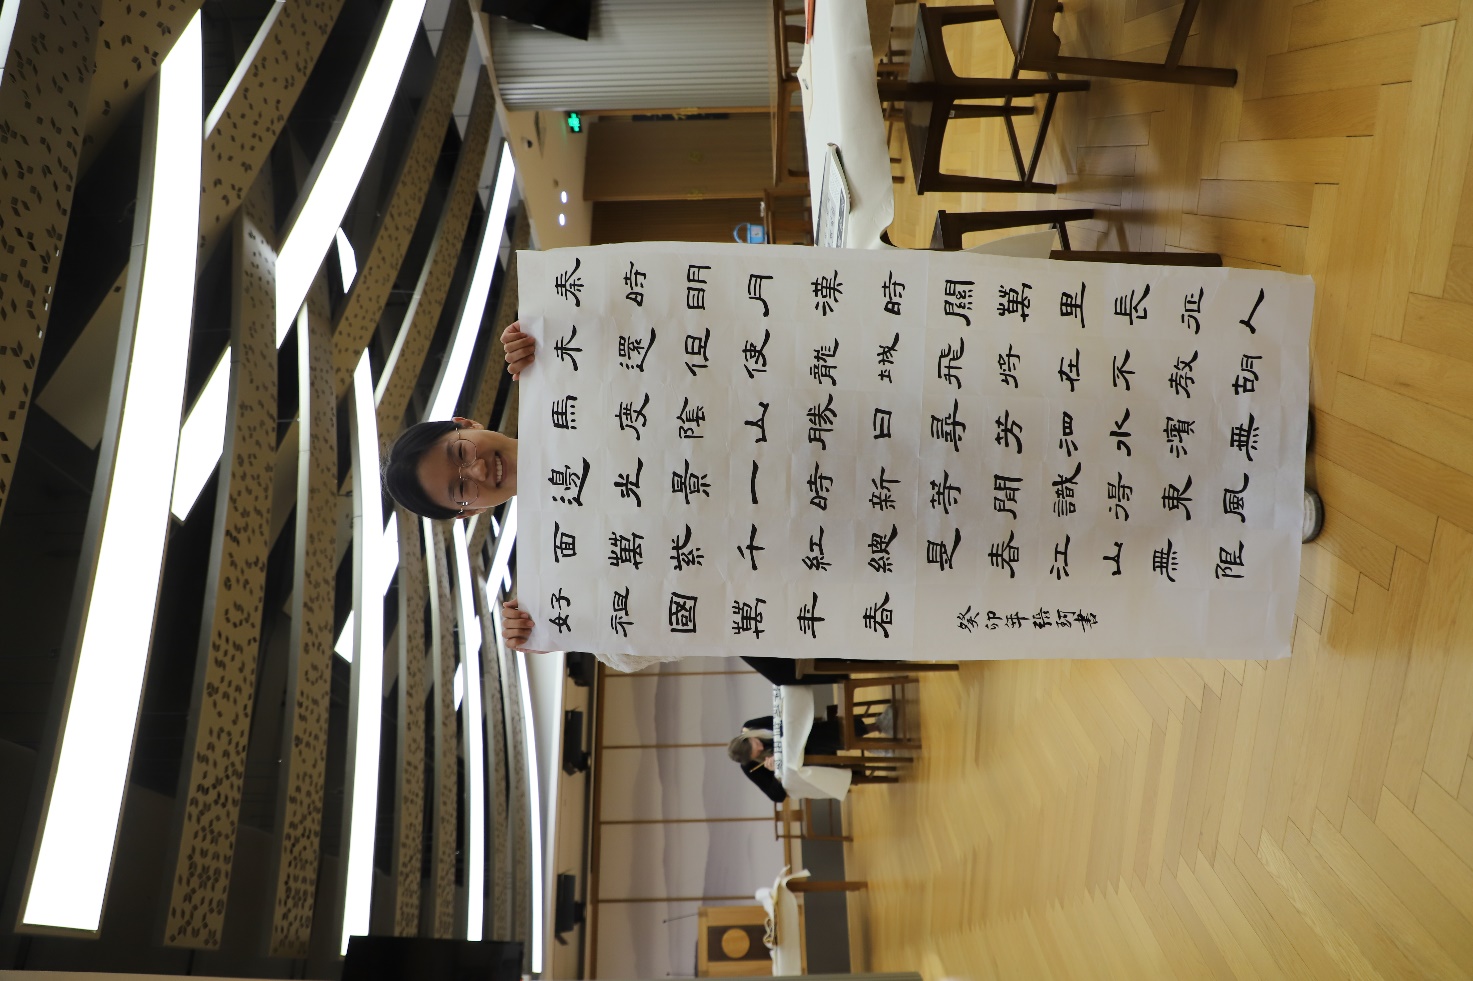 秦時明月漢時關萬里長征人
未還但使龍城飛將在不教胡
馬度陰山勝日尋芳泗水濱無
邊光景一時新等閒識得東風
面萬紫千紅總是春江山無限
好祖國萬年春
癸卯年張珂書